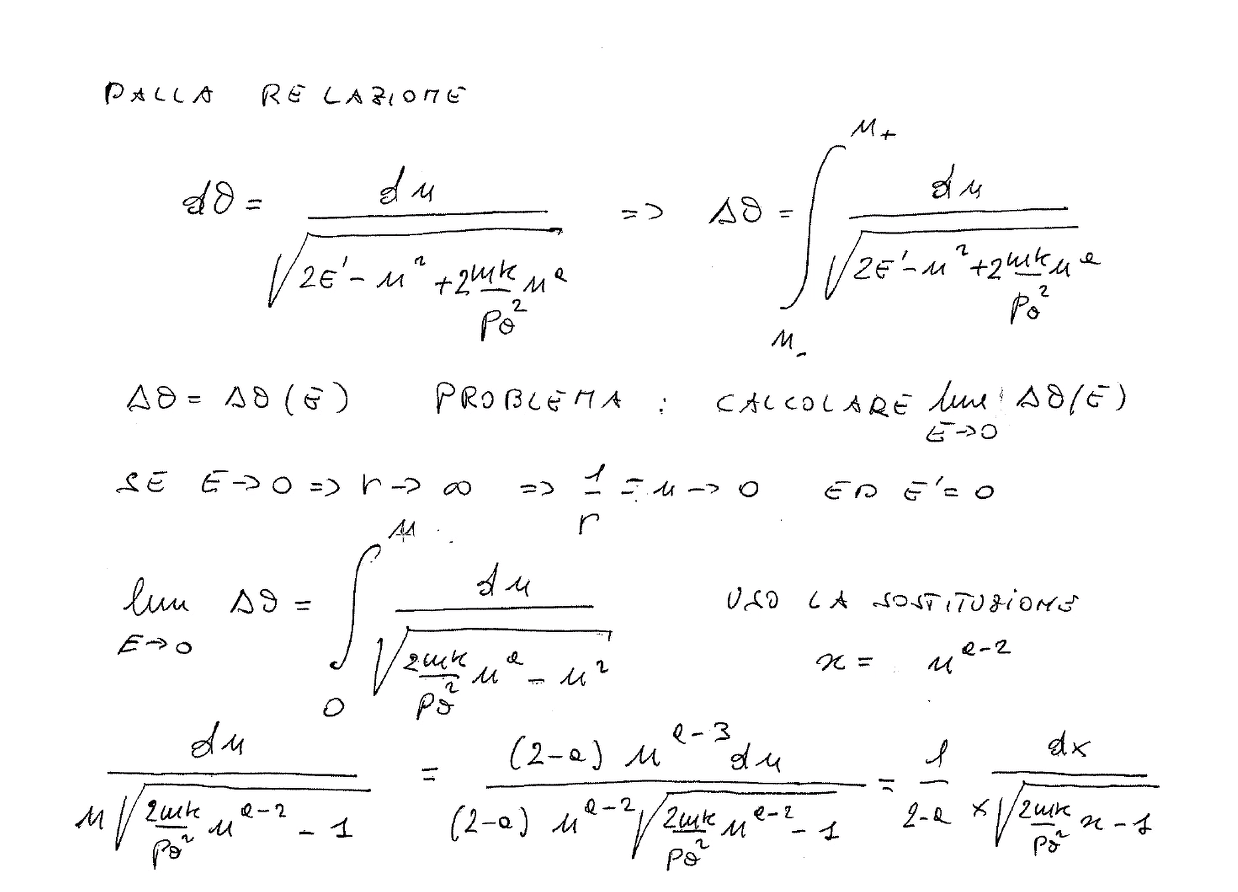 DALLA RELAZIONE
dθ = du / √(2E' - u² + 2mk/pθ² uᵃ) => Δθ = ∫_{u₋}^{u₊} du / √(2E' - u² + 2mk/pθ² uᵃ)
Δθ = Δθ(E) PROBLEMA : CALCOLARE lim_{E→0} Δθ(E)
SE E → 0 => r → ∞ => 1/r = u → 0 ED E' = 0
lim_{E→0} Δθ = ∫_{0}^{u} du / √(2mk/pθ² uᵃ - u²) USO LA SOSTITUZIONE
x = u^{a-2}
du / (u √(2mk/pθ² u^{a-2} - 1)) = (2-a) u^{a-3} du / ((2-a) u^{a-2} √(2mk/pθ² u^{a-2} - 1)) = 1/(2-a) dx / (x √(2mk/pθ² x - 1))